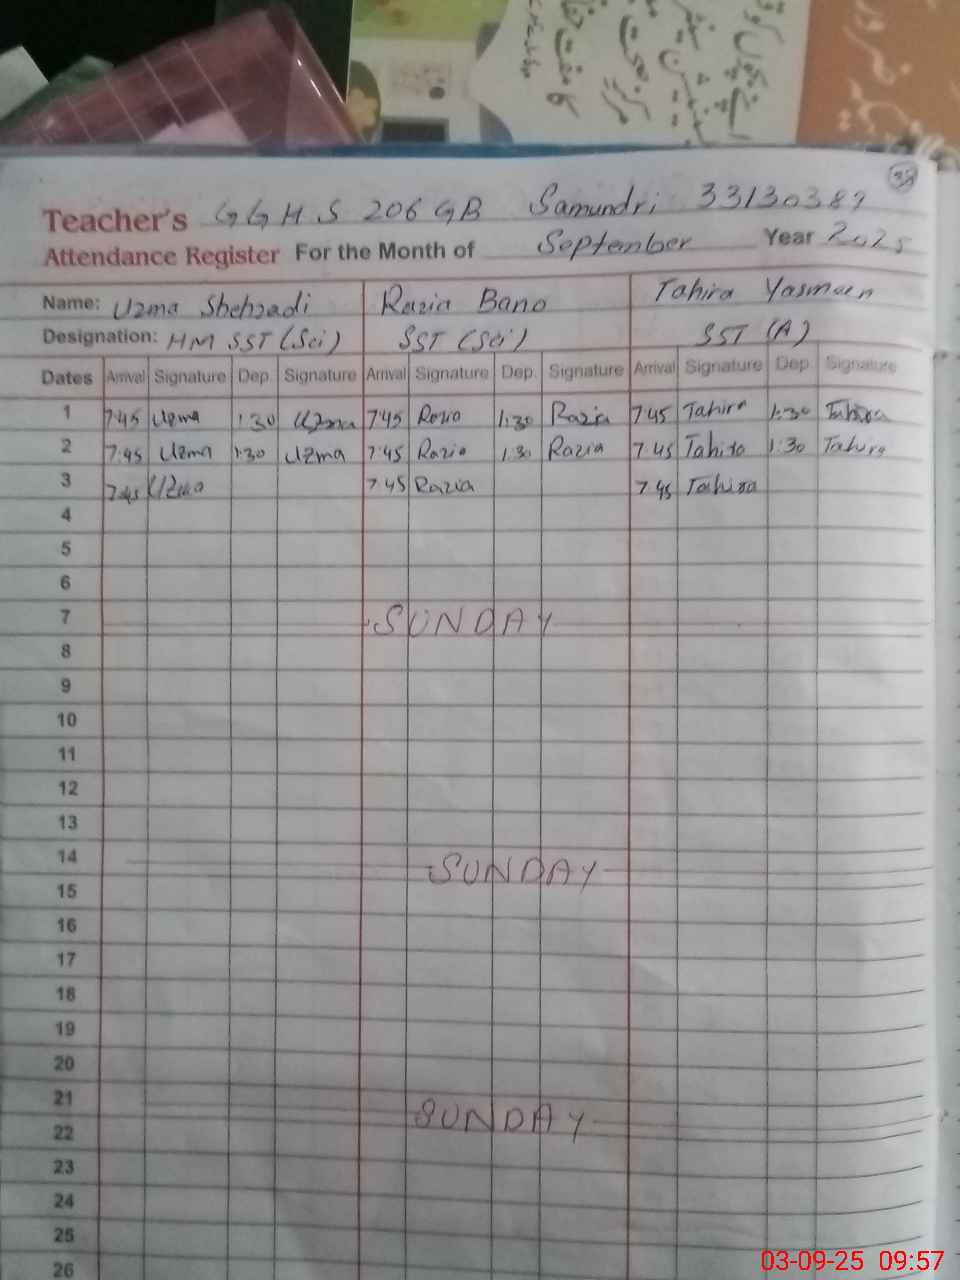 38
Teacher's GGHS 206 GB Samundri 33130389
Attendance Register For the Month of September Year 2025
Name: Uzma Shehzadi Razia Bano Tahira Yasmeen
Designation: HM SST (Sci) SST (Sci) SST (A)
Dates Arrival Signature Dep. Signature Arrival Signature Dep. Signature Arrival Signature Dep. Signature
1 7:45 Uzma 1:30 Uzma 7:45 Razia 1:30 Razia 7:45 Tahira 1:30 Tahira
2 7:45 Uzma 1:30 Uzma 7:45 Razia 1:30 Razia 7:45 Tahira 1:30 Tahira
3 7:45 Uzma 7:45 Razia 7:45 Tahira
4
5
6
7 SUNDAY
8
9
10
11
12
13
14 SUNDAY
15
16
17
18
19
20
21 SUNDAY
22
23
24
25
26
03-09-25 09:57